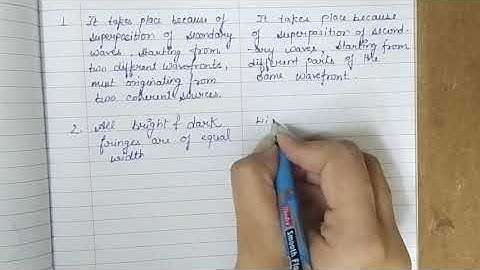 1. It takes place because of
superposition of secondary
waves, starting from
two different wavefronts,
must originating from
two coherent sources.
It takes place because
of superposition of second-
-ry waves, starting from
different parts of the
same wavefront.
2. All bright & dark
fringes are of equal
width
Wi
Smooth Flo